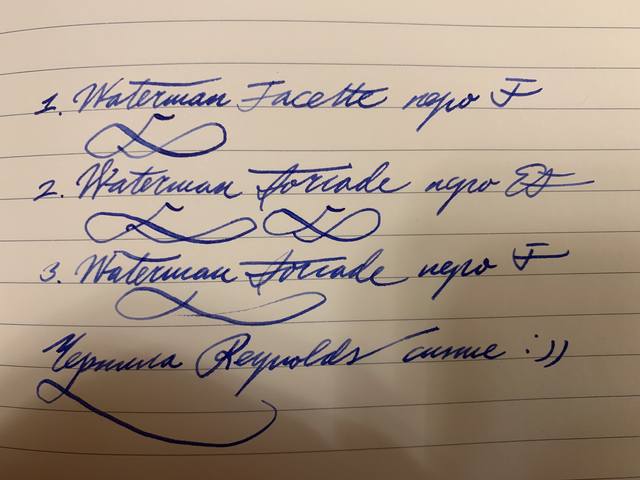 1. Waterman Facette перо F
2. Waterman Forcade перо EF
3. Waterman Forcade перо F
Чернила Reynolds синие :))